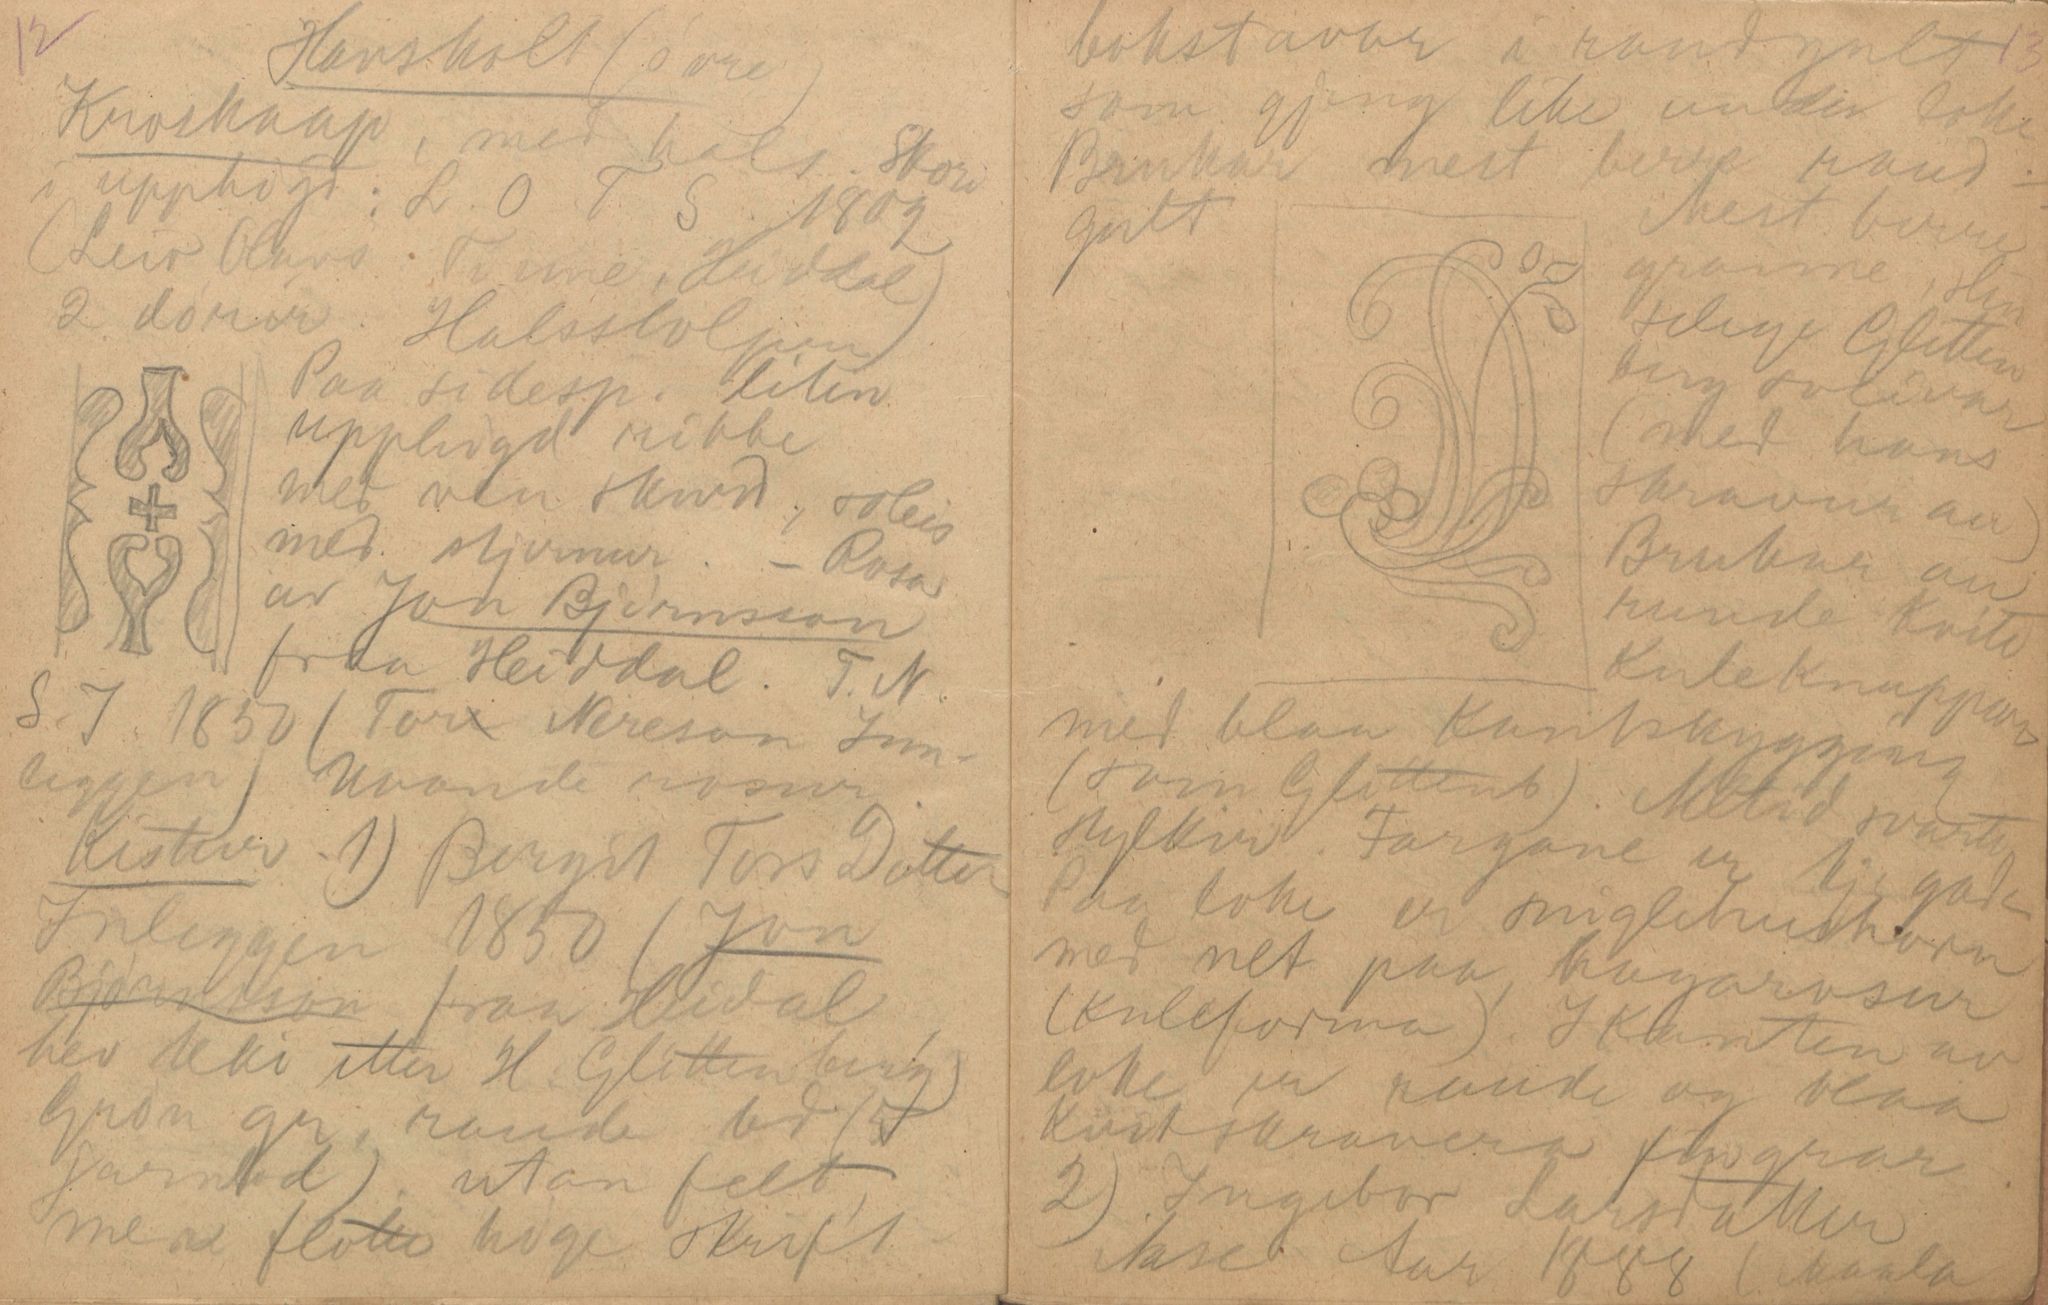 12
Hansholt (øvre)
Kroskaap, med hals. Skori
i upphøgt: L O T S 1802
(Leiv Olavs. Tinne, Heiddal)
2 dører. Halsstolpen
Paa sidesp. liten
upphøgd ribbe
med ven skurd, soleis
med stjernur. – Rosa
av Jon Bjørnsson
fraa Heiddal. T. N.
S. J 1850 (Tore Nereson Inn-
leggen) Uvande rosur.
Kistur 1) Bergit Tors Datter
Inleggen 1850 (Jon
Bjørnsson fraa Heidal
hev teke etter H. Glittenberg)
Grøn gr, raude bd (5
jarnbd). utan felt,
mene flotte høge skrift-
13
bokstavar i raudgult
som gjeng like under loke
Brukar mest berre raud-
gult
Mest berre
granne,
selege Glitten
berg
(med hans
skravur au)
Brukar au
runde kvite
kuleknuppar
med blaa kantskygging
(som Glittenb). Altid svarte
stylkir. Fargane er
Paa loke er sniglehushorn
med net paa, hagarosur
(kuleforma). I kanten av
loke er raude og blaa
kvitskravera fingrar
2) Ingebor Larsdatter
Aase Aar 1888 (Maala